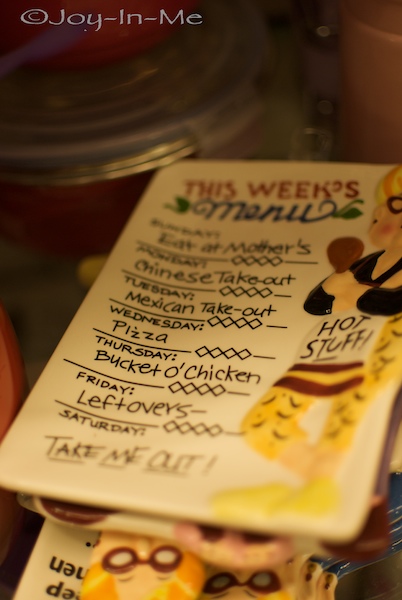 ©Joy-In-Me
THIS WEEK'S
Menu
SUNDAY:
Eat at Mother's
MONDAY:
Chinese Take-out
TUESDAY:
Mexican Take-out
WEDNESDAY:
Pizza
THURSDAY:
Bucket O'Chicken
FRIDAY:
Leftovers
SATURDAY:
TAKE ME OUT!
HOT
STUFF!